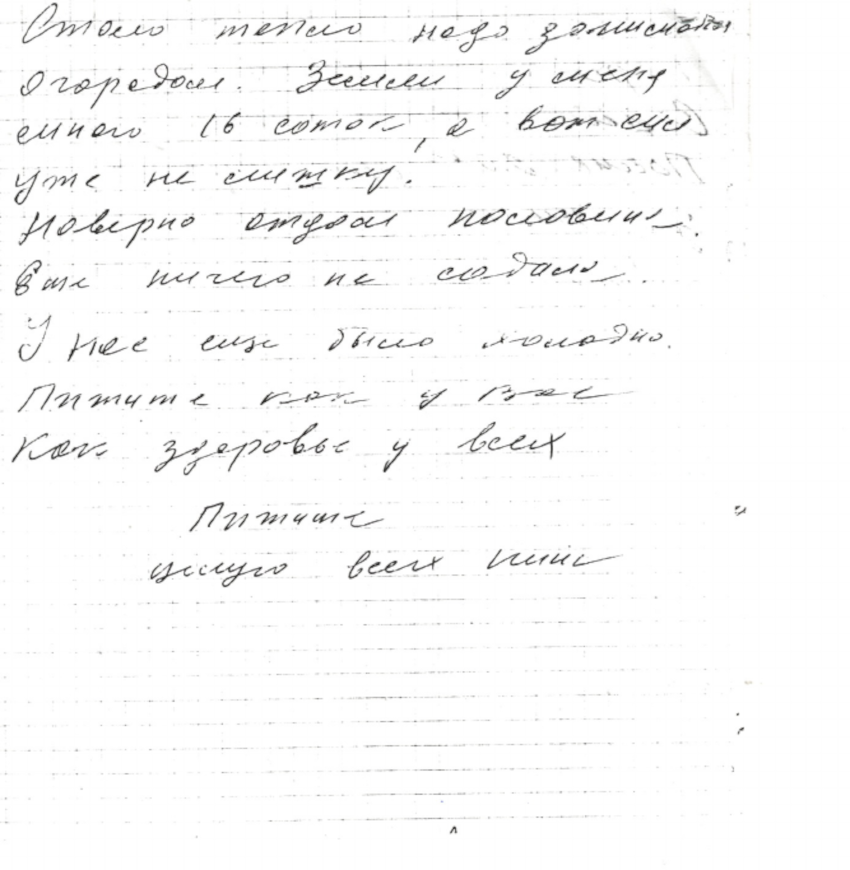 Стало тепло надо заниматся
огородом. Земли у меня
много 16 соток, а вот сил
уже не слишку.
Наверно отдам половину.
Еще ничего не садила.
У нас еще было холодно.
Пишите как у Вас
Как здоровье у всех
Пишите
целую всех